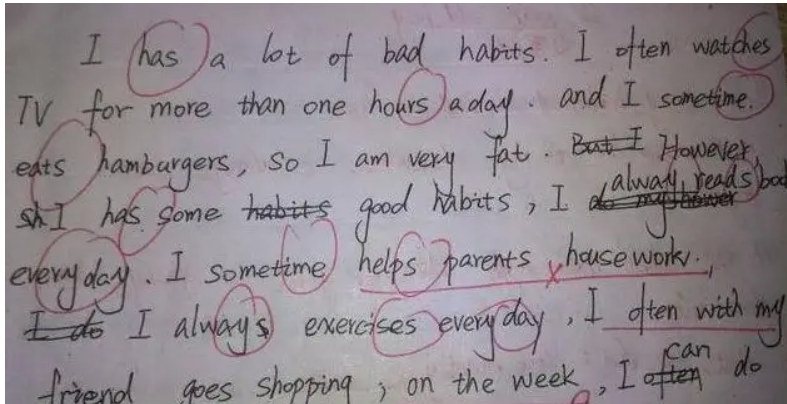 I has a lot of bad habits. I often watches
TV for more than one hours a day. and I sometime.
eats hamburgers, so I am very fat. But I However,
sh I has some habits good habits, I do my alway reads bod
everyday. I sometime helps parents housework.,
I do I always exercises everyday, I often with my
friend goes shopping, on the week, I often can do